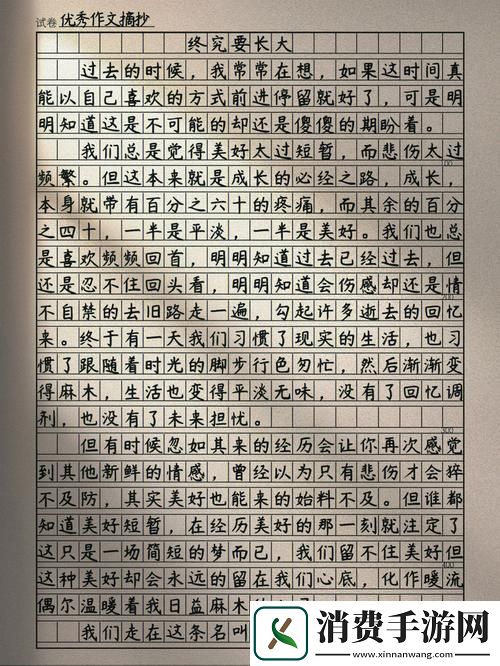 试卷 优秀作文摘抄
终究要长大
过去的时候，我常常在想，如果这时间真
能以自己喜欢的方式前进停留就好了，可是明
明知道这是不可能的却还是傻傻的期盼着。
我们总是觉得美好太过短暂，而悲伤太过
频繁。但这本来就是成长的必经之路，成长，
本身就带有百分之六十的疼痛，而其余的百分
之四十，一半是平淡，一半是美好。我们也总
是喜欢频频回首，明明知道过去已经过去，但
还是忍不住回头看，明明知道会伤感却还是情
不自禁的去旧路走一遍，勾起许多逝去的回忆
来。终于有一天我们习惯了现实的生活，也习
惯了跟随着时光的脚步行色匆忙，然后渐渐变
得麻木，生活也变得平淡无味，没有了回忆调
剂，也没有了未来担忧。
300
但有时候忽如其来的经历会让你再次感觉
到其他新鲜的情感，曾经以为只有悲伤才会猝
不及防，其实美好也能来的始料不及。但谁都
知道美好短暂，在经历美好的那一刻就注定了
这只是一场简短的梦而已，我们留不住美好但
400
这种美好却会永远的留在我们心底，化作暖流
偶尔温暖着我日益麻木
我们走在这条名叫
消费手游网
www.xinnanwang.com